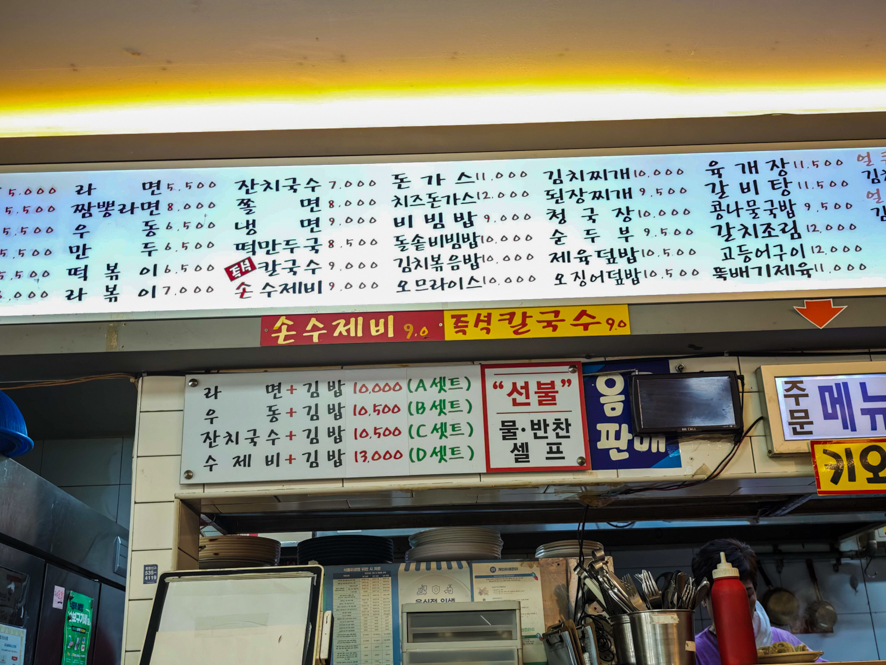 5.000 라 면 5.500 잔치국수 7.000 돈 가 스 11.000 김치찌개 10.000 육 개 장 11.500
5.500 짬뽕라면 8.000 쫄 면 8.000 치즈돈가스 12.000 된장찌개 9.500 갈 비 탕 11.500
5.500 우 동 6.500 냉 면 9.000 비 빔 밥 9.000 청 국 장 10.000 콩나물국밥 9.500
만 두 6.500 떡만두국 8.500 돌솥비빔밥 10.000 순 두 부 9.500 갈치조림 12.000
5.500 떡 볶 이 6.500 즉석 칼국수 9.000 김치볶음밥 10.000 제육덮밥 10.500 고등어구이 12.000
6.000 라 볶 이 7.000 손수제비 9.000 오므라이스 10.000 오징어덮밥 10.500 뚝배기제육 11.000
손수제비 9.0 · 즉석칼국수 9.0
라 면+김밥 10,000 (A셋트)
우 동+김밥 10,500 (B셋트)
잔치국수+김밥 10,500 (C셋트)
수 제 비+김밥 13,000 (D셋트)
"선불"
물·반찬
셀 프
판매
주문
메뉴
키오